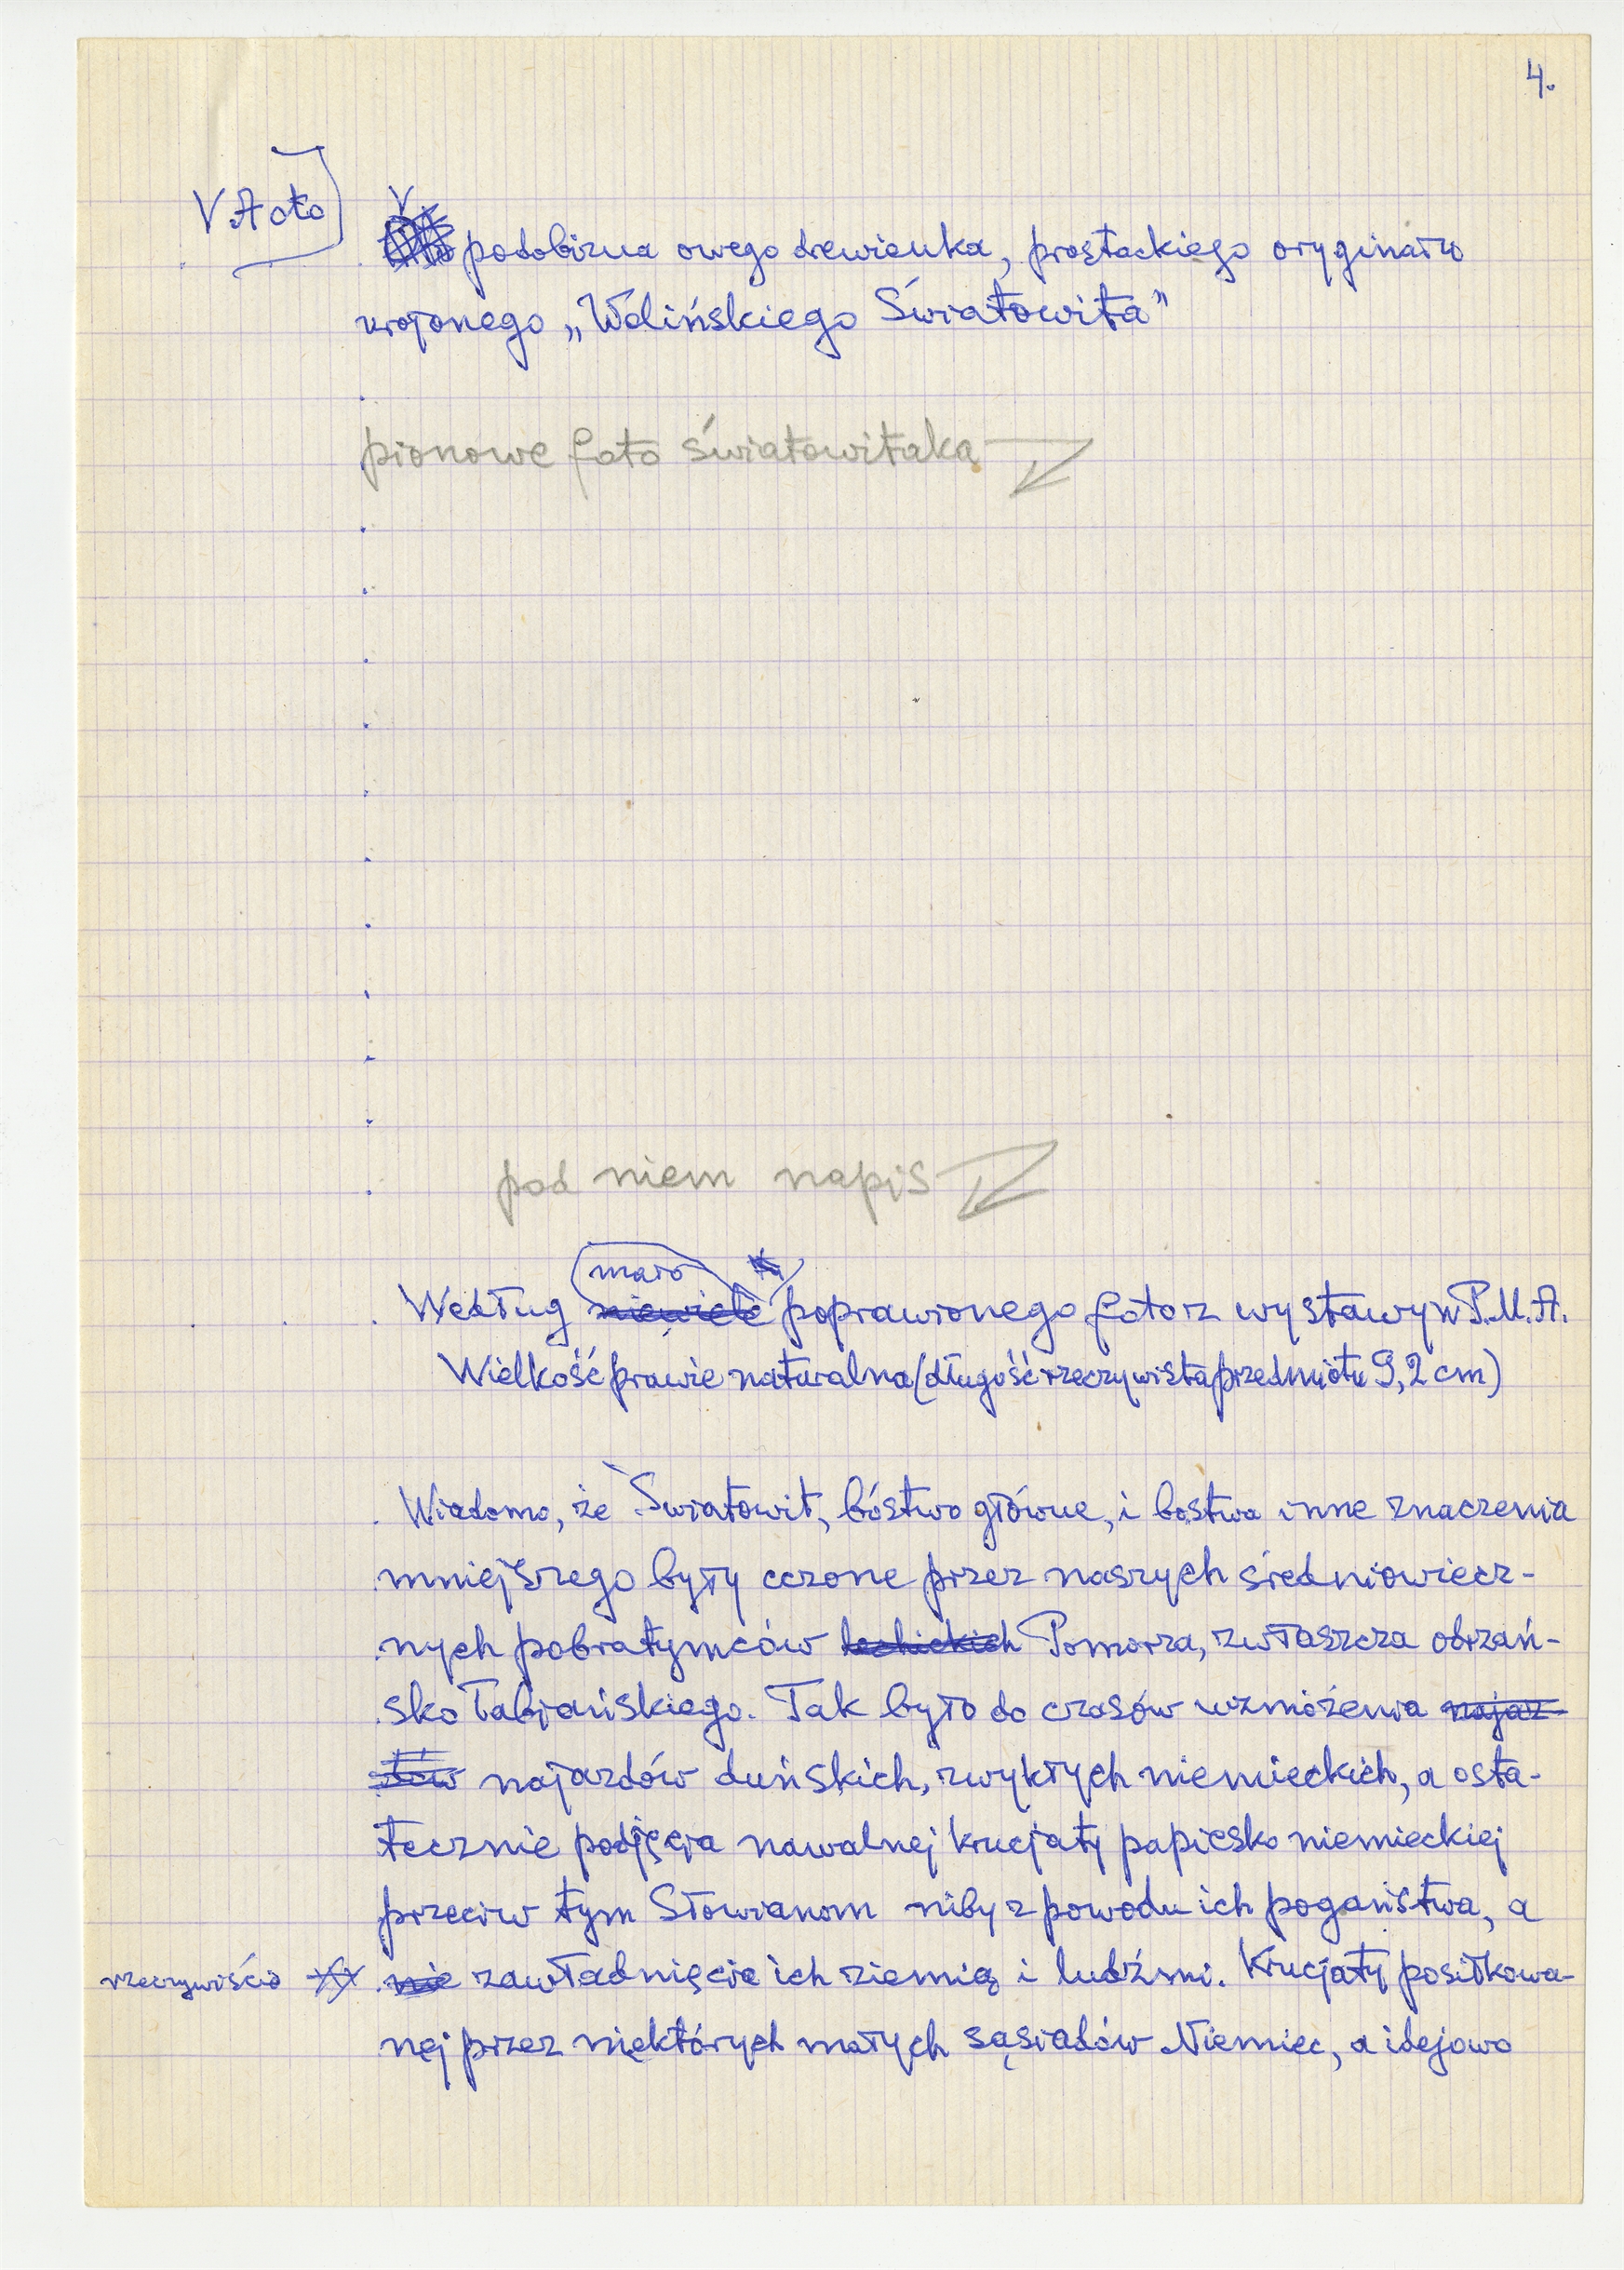 4.
V A oto
V podobizna owego drewienka, prostackiego oryginału
urojonego „Wolińskiego Światowita”
pionowe foto światowitaka
pod niem napis
mało
Według niewiele poprawionego foto z wystawy w P.M.A.
Wielkość prawie naturalna (długość rzeczywista przedmiotu 9,2 cm)
Wiadomo, że Światowit, bóstwo główne, i bóstwa inne znaczenia
mniejszego były czczone przez naszych średniowiecz-
nych pobratymców lechickich Pomorza, zwłaszcza odrzań-
sko łabiańskiego. Tak było do czasów wzmożenia najaz-
dów najazdów duńskich, zwykłych niemieckich, a osta-
tecznie podjęcia nawalnej krucjaty papiesko niemieckiej
przeciw tym Słowianom niby z powodu ich pogaństwa, a
rzeczywiście nie zawładnięcie ich ziemią i ludźmi. Krucjaty posiłkowa-
nej przez niektórych małych sąsiadów Niemiec, a idejowo